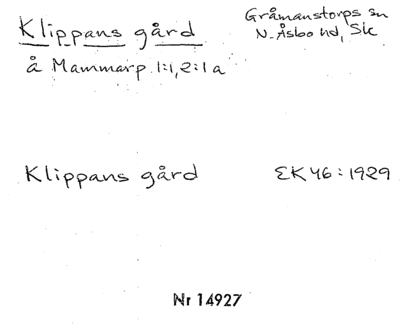 Klippans gård
Gråmanstorps sn
N. Åsbo hd, Sk
å Mammarp 1:1, 2:1 a
Klippans gård
EK 46 : 1929
Nr 14927